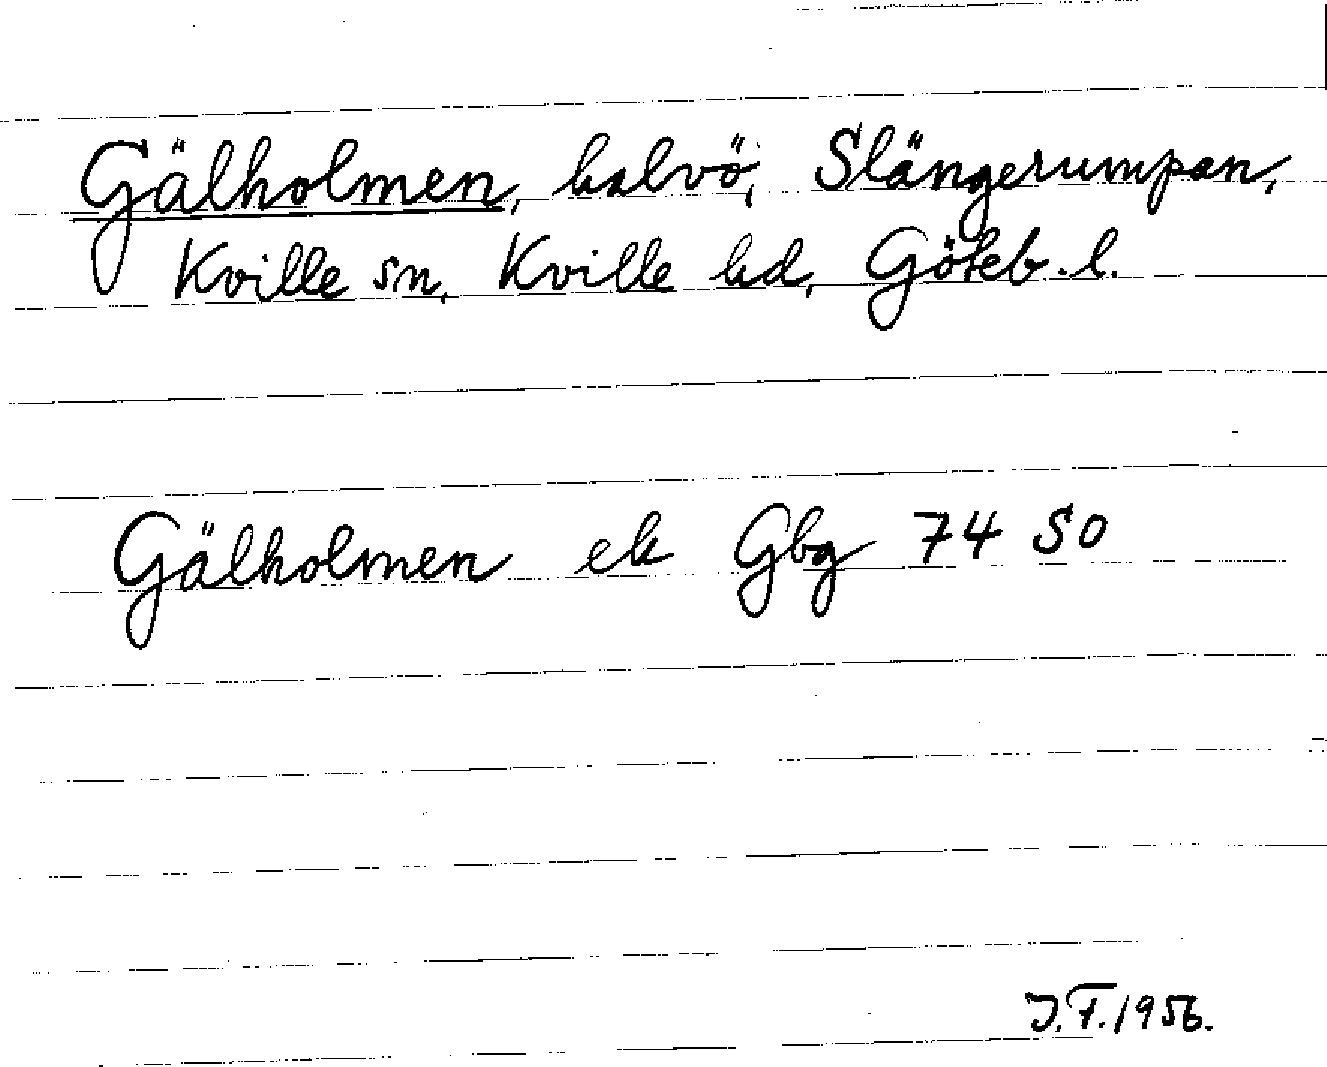 Gälholmen, halvö, Slängerumpan,
Kville sn, Kville hd, Göteb. l.
Gälholmen ek Gbg 74 SO
J.F. 1956.